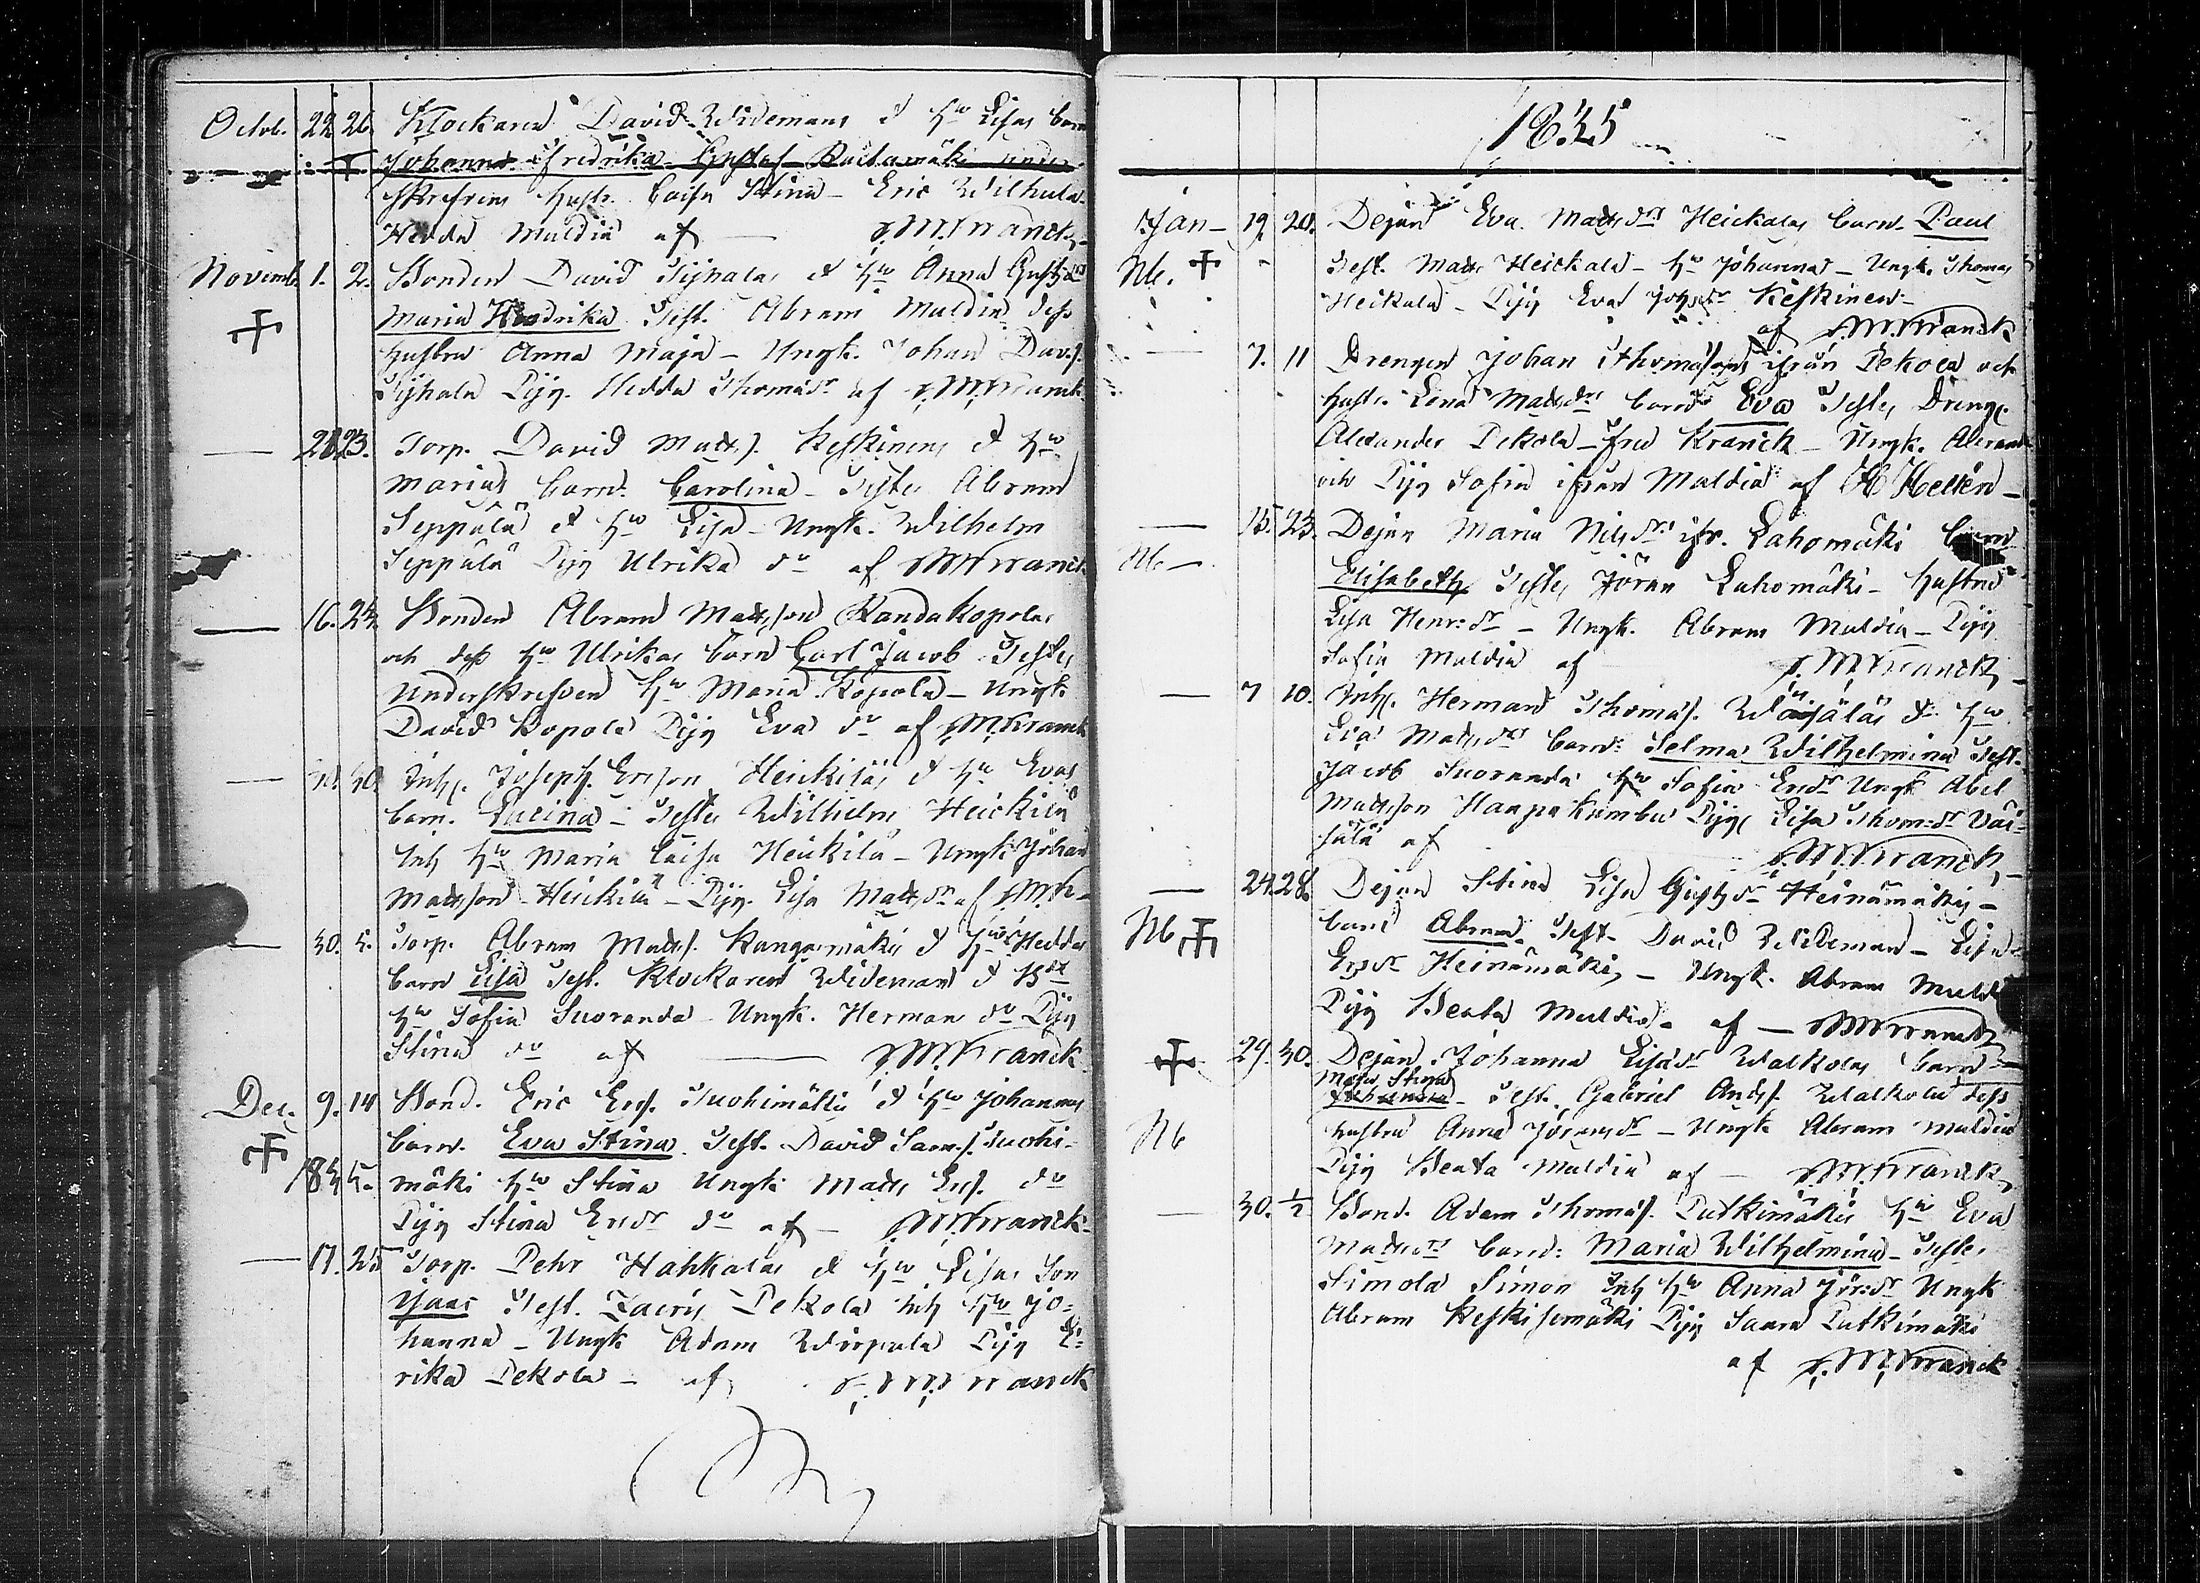 Octob. 22 26. Klockaren David Widemans & hu Lisas barn
Johanna Fredrika Gustaf Rautamäki under
skrefvens hustr. Caisa Stina - Eric Wilhula
Hedda Muldia af - Kranck
Novemb. 1. 2. Bonden David Sijkalas & hu Anna Gust.
Maria Hendrika Test. Abram Muldia dess
hustru Anna Maja - Ungk. Johan Davs.
Sijkala Pig. Hedda Thomadr af Kranck
- 23. Torp. David Matts. Keskinens & hu
Marias barn. Carolina - Testes Abram
Seppälä & hu Lisa - Ungk. Wilhelm
Seppälä Pig Ulrika do af Kranck
- 16. 24. Bonden Abram Mattsson Kopolas
och dess hu Ulrikas barn Carl Jacob Testes
Underskrefven hu Maria Kopola - Ungk
David Kopola Pig Eva do af M. Kranck
- 30. Inh. Joseph Ersson Heickiläs & hu Evas
barn. - Testes Wilhelm Heickilä
Inh hu Maria Caisa Heickilä - Ungk Johan
Mattsson Heickilä - Pig. Lisa Mattsdr af M. K
- 30. 5. Torp. Abram Matts. Kangasmäkis & hu Heddas
barn Lisa Test. Klockaren Wideman &
hu Sofia Suoranda - Ungk. Herman do Pig
Stina do af - M. Kranck
Dec. 9. 14 Bond. Eric Ers. Suohimäkis & hu Johannas
barn. Eva Stina. Test. David Sam.s. Suohi-
mäki hu Stina Ungk Matts Ers. do
Pig Stina Ersdr do af - M. Kranck
- 17. 25 Torp. Pehr Hahkalas & hu Lisas Son
Isaac Test. Zacris Pekola Inh hu Jo-
hanna - Ungk Adam Wirpula Pig E-
rika Pekola - af M. Kranck
1835
Jan - 19 20. Dejan Eva Mattsdrs Heickalas barn. Paul
Nb. Test. Matts Heickala - hu Johanna - Ungk. Thomas
Heickala - Pig Eva Keskinen -
af M. Kranck
7. 11 Drengen Johan Thomassons ifrån Pekola och
hustr. Lena Mattsdrs barn Eva Testes Dreng.
Alexander Pekola - Fru Kranck - Ungk. Abram
och Pig Sofia ifrån Muldia af H Hellén -
- 15. 23. Dejan Maria Nilsdrs ifr. Lahomäki barn
Nb - Elisabeth Testes Jöran Lahomäki - hustru
Lisa Henr:dr - Ungk. Abram Muldia - Pig
Sofia Muldia af M. Kranck
- 7 10. Inh. Herman Thomas. Wäisäläs & hu
Mattsdrs barn: Selma Wilhelmina Test.
Jacob Suoranda hu Sofia Ersdr Ungk Abel
Mattsson Haapakumbu Pig Lisa Thom:dr Väi-
sälä af M. Kranck
- 24. 28. Dejan Stina Lisa Gust:dr Heinämäkis -
Nb barn Abram. Test. David Wideman - Lisa
Ersdr Heinämäki, - Ungk. Abram Muldia
Pig Beata Muldia - af - M. Kranck
29. 30. Dejan Johanna Walkolas barn
Maja Stina
Johanna - Test. Gabriel Ands. Walkola dess
Nb hustru Anna Jöransdr - Ungk Abram Muldia
Pig Beata Muldia af - M. Kranck
- 30. 1/2 Bond. Adam Thomas. Putkimäkis hu Eva
Mattsdrs barn: Maria Wilhelmina - Testes
Simola Simon Inh hu Anna Jör:dr Ungk
Abram Keskisemäki Pig Saara Putkimäki
af M. Kranck